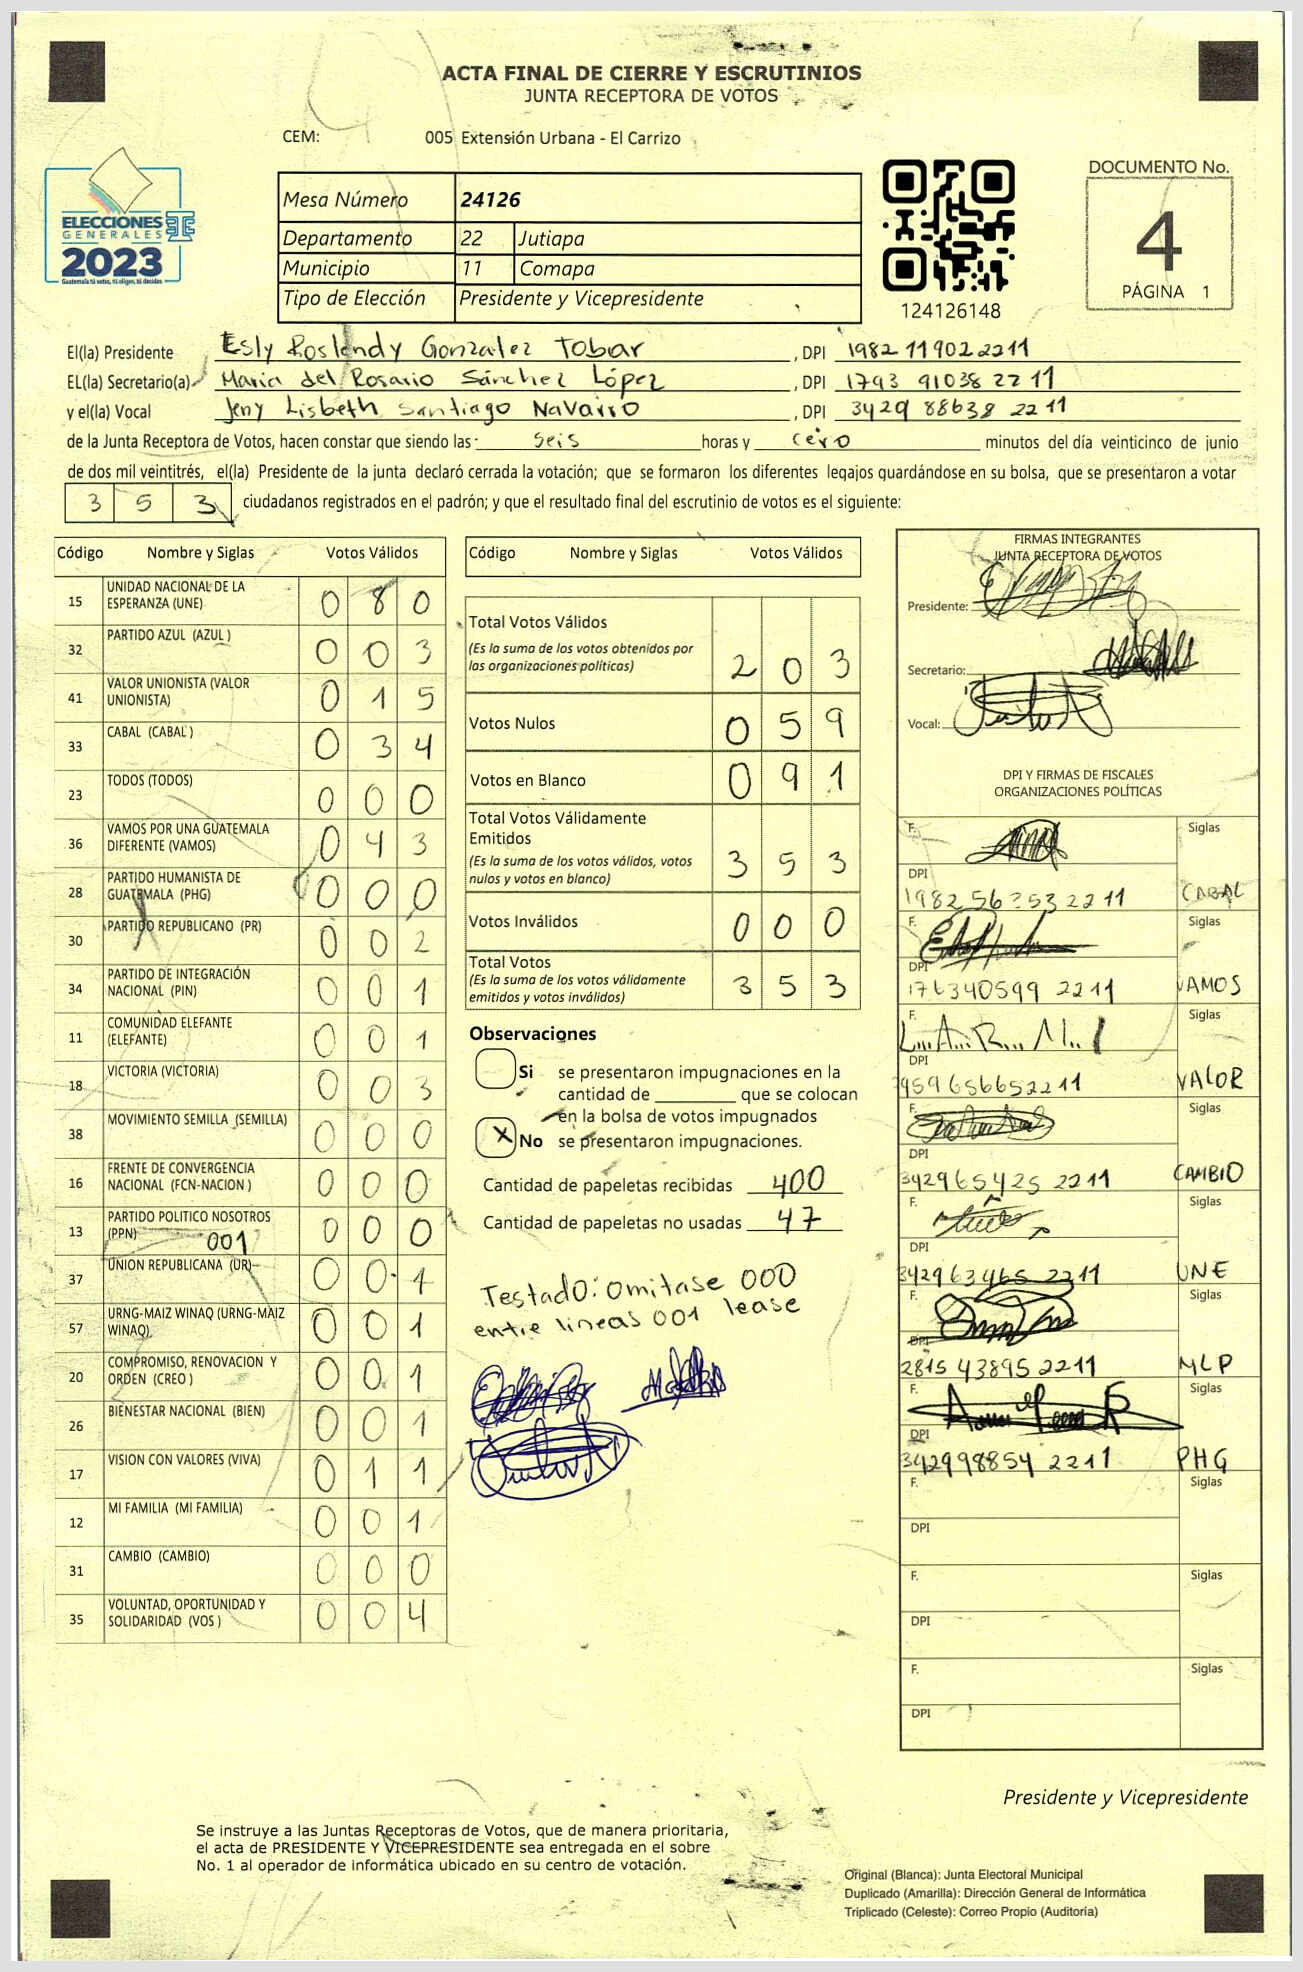 ACTA FINAL DE CIERRE Y ESCRUTINIOS
JUNTA RECEPTORA DE VOTOS
CEM: 005 Extensión Urbana - El Carrizo
ELECCIONES
GENERALES
2023
Guatemala tú votas, tú eliges, tú decides
Mesa Número 24126
Departamento 22 Jutiapa
Municipio 11 Comapa
Tipo de Elección Presidente y Vicepresidente
124126148
DOCUMENTO No.
4
PÁGINA 1
El(la) Presidente Esly Roslendy Gonzalez Tobar , DPI 1982 11902 2211
EL(la) Secretario(a) Maria del Rosario Sánchez López , DPI 1793 91038 2211
y el(la) Vocal Jeny Lisbeth Santiago Navarro , DPI 3429 88638 2211
de la Junta Receptora de Votos, hacen constar que siendo las seis horas y cero minutos del día veinticinco de junio
de dos mil veintitrés, el(la) Presidente de la junta declaró cerrada la votación; que se formaron los diferentes legajos guardándose en su bolsa, que se presentaron a votar
3 5 3 ciudadanos registrados en el padrón; y que el resultado final del escrutinio de votos es el siguiente:
Código Nombre y Siglas Votos Válidos
15 UNIDAD NACIONAL DE LA ESPERANZA (UNE) 0 8 0
32 PARTIDO AZUL (AZUL ) 0 0 3
41 VALOR UNIONISTA (VALOR UNIONISTA) 0 1 5
33 CABAL (CABAL ) 0 3 4
23 TODOS (TODOS) 0 0 0
36 VAMOS POR UNA GUATEMALA DIFERENTE (VAMOS) 0 4 3
28 PARTIDO HUMANISTA DE GUATEMALA (PHG) 0 0 0
30 PARTIDO REPUBLICANO (PR) 0 0 2
34 PARTIDO DE INTEGRACIÓN NACIONAL (PIN) 0 0 1
11 COMUNIDAD ELEFANTE (ELEFANTE) 0 0 1
18 VICTORIA (VICTORIA) 0 0 3
38 MOVIMIENTO SEMILLA (SEMILLA) 0 0 0
16 FRENTE DE CONVERGENCIA NACIONAL (FCN-NACION ) 0 0 0
13 PARTIDO POLITICO NOSOTROS (PPN) 001 0 0 0
37 UNION REPUBLICANA (UR) 0 0 1
57 URNG-MAIZ WINAQ (URNG-MAIZ WINAQ) 0 0 1
20 COMPROMISO, RENOVACION Y ORDEN (CREO ) 0 0 1
26 BIENESTAR NACIONAL (BIEN) 0 0 1
17 VISION CON VALORES (VIVA) 0 1 1
12 MI FAMILIA (MI FAMILIA) 0 0 1
31 CAMBIO (CAMBIO) 0 0 0
35 VOLUNTAD, OPORTUNIDAD Y SOLIDARIDAD (VOS ) 0 0 4
Código Nombre y Siglas Votos Válidos
Total Votos Válidos 2 0 3
(Es la suma de los votos obtenidos por
las organizaciones políticas)
Votos Nulos 0 5 9
Votos en Blanco 0 9 1
Total Votos Válidamente
Emitidos 3 5 3
(Es la suma de los votos válidos, votos
nulos y votos en blanco)
Votos Inválidos 0 0 0
Total Votos 3 5 3
(Es la suma de los votos válidamente
emitidos y votos inválidos)
Observaciones
Si se presentaron impugnaciones en la
cantidad de ________ que se colocan
en la bolsa de votos impugnados
X No se presentaron impugnaciones.
Cantidad de papeletas recibidas 400
Cantidad de papeletas no usadas 47
Testado: omitase 000
entre lineas 001 lease
FIRMAS INTEGRANTES
JUNTA RECEPTORA DE VOTOS
Presidente:
Secretario:
Vocal:
DPI Y FIRMAS DE FISCALES
ORGANIZACIONES POLÍTICAS
F. Siglas
DPI
CABAL
F. Siglas
DPI
176340599 2211 VAMOS
F. Siglas
L...A...R...M...
DPI
959656652211 VALOR
F. Siglas
DPI
342965425 2211 CAMBIO
F. Siglas
DPI
342963465 2211 UNE
F. Siglas
DPI
2815 43895 2211 MLP
F. Siglas
DPI
342998854 2211 PHG
F. Siglas
DPI
F. Siglas
DPI
F. Siglas
DPI
Presidente y Vicepresidente
Se instruye a las Juntas Receptoras de Votos, que de manera prioritaria,
el acta de PRESIDENTE Y VICEPRESIDENTE sea entregada en el sobre
No. 1 al operador de informática ubicado en su centro de votación.
Original (Blanca): Junta Electoral Municipal
Duplicado (Amarilla): Dirección General de Informática
Triplicado (Celeste): Correo Propio (Auditoría)